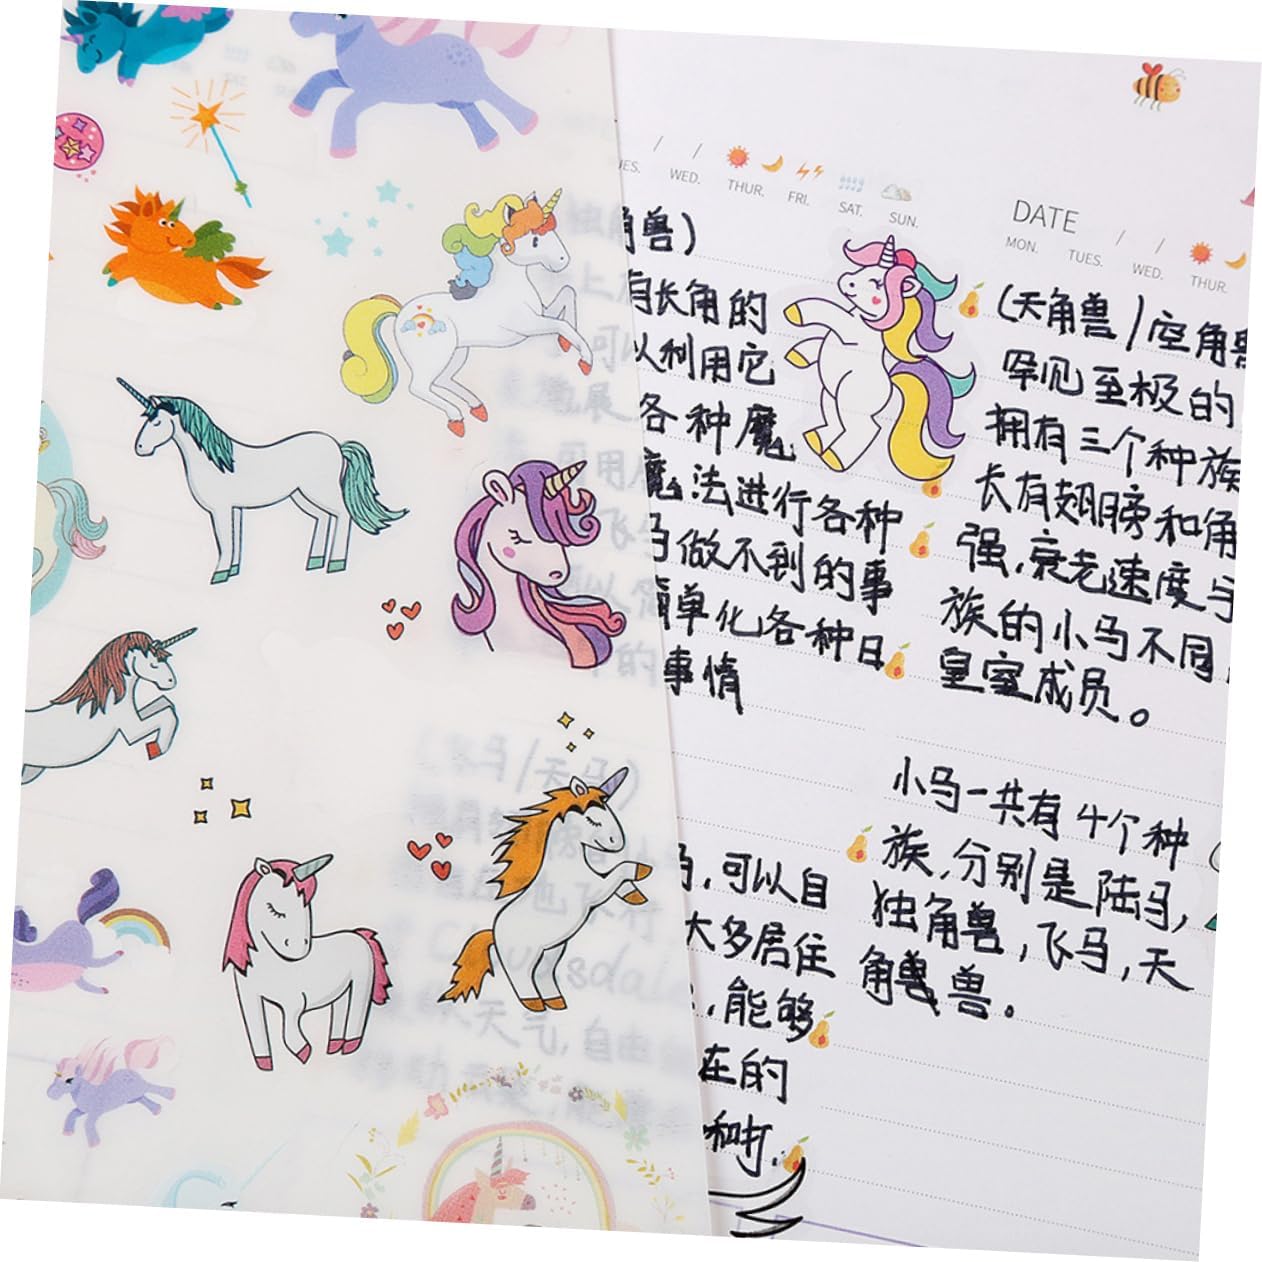 UES. / WED. / THUR. FRI. SAT. SUN.
角兽)
有长角的
以利用它
各种魔
魔法进行各种
马做不到的事
简单化各种日
事情
马,可以自
大多居住
,能够
在的
和打.
DATE
MON. TUES. / WED. / THUR.
(天角兽/空角兽
罕见至极的
拥有三个种族
长有翅膀和角
强,衰老速度与
族的小马不同,
皇室成员。
小马一共有4个种
族,分别是陆马,
独角兽,飞马,天
角兽兽。